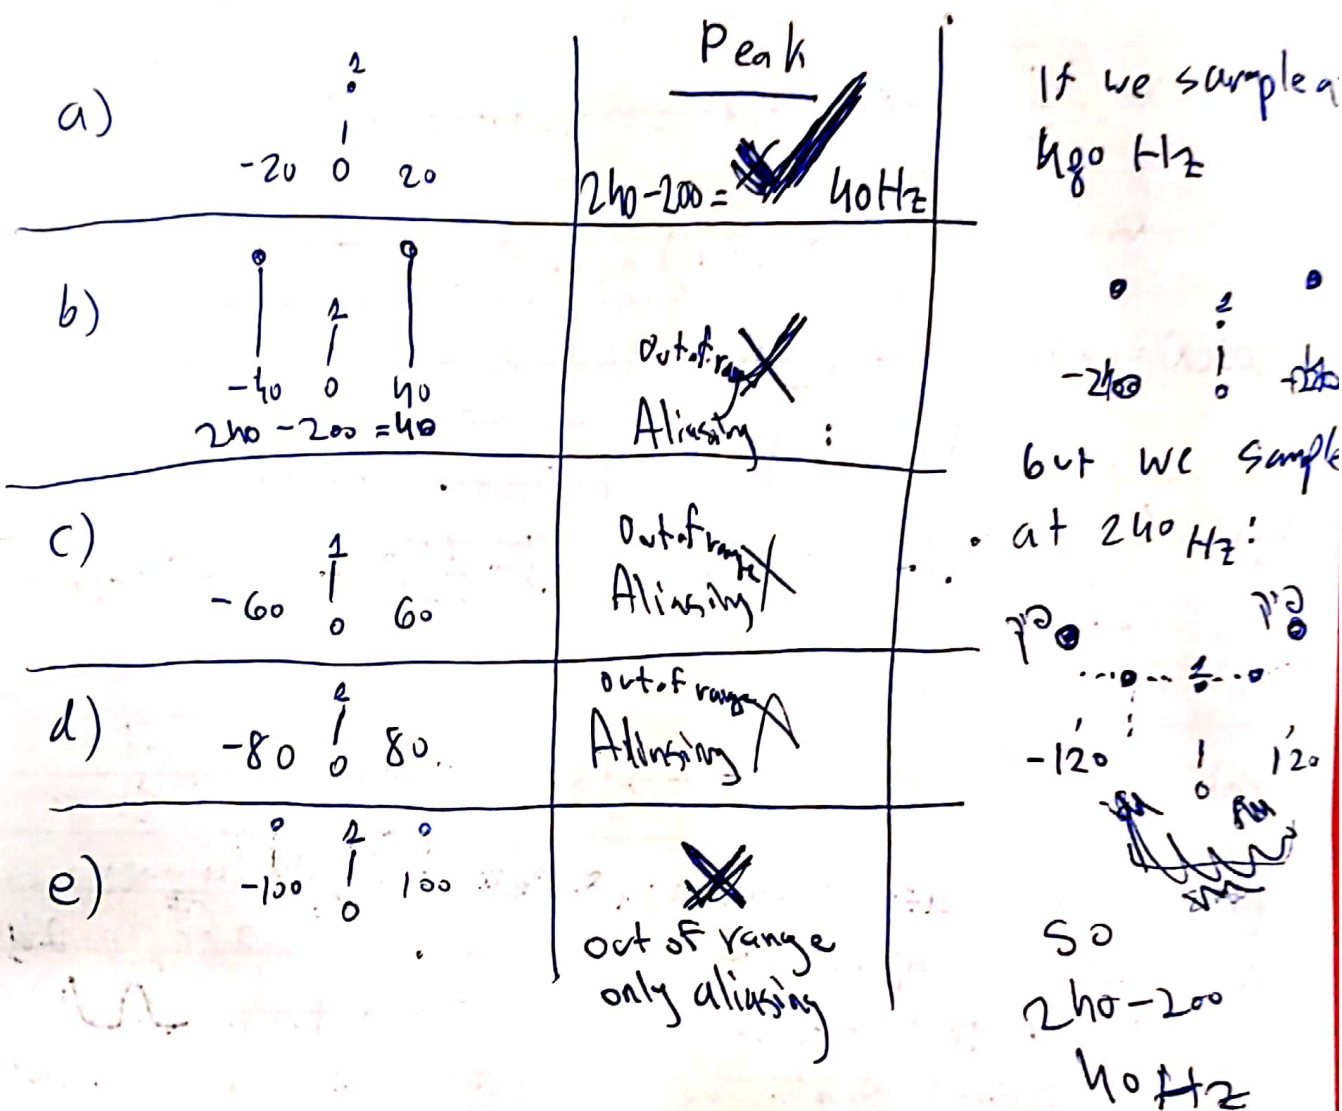 Peak
a)
1
-20 0 20
240-200= 40Hz
b)
1
-40 0 40
240-200=40
Aliasing
c)
1
-60 0 60
out of range
Aliasing
d)
1
-80 0 80
out of range
Aliasing
e)
1
-100 0 100
out of range
only aliasing
If we sample
480 Hz
1
0
but we sample
at 240 Hz:
1
-120 0 120
so
240-200
40Hz